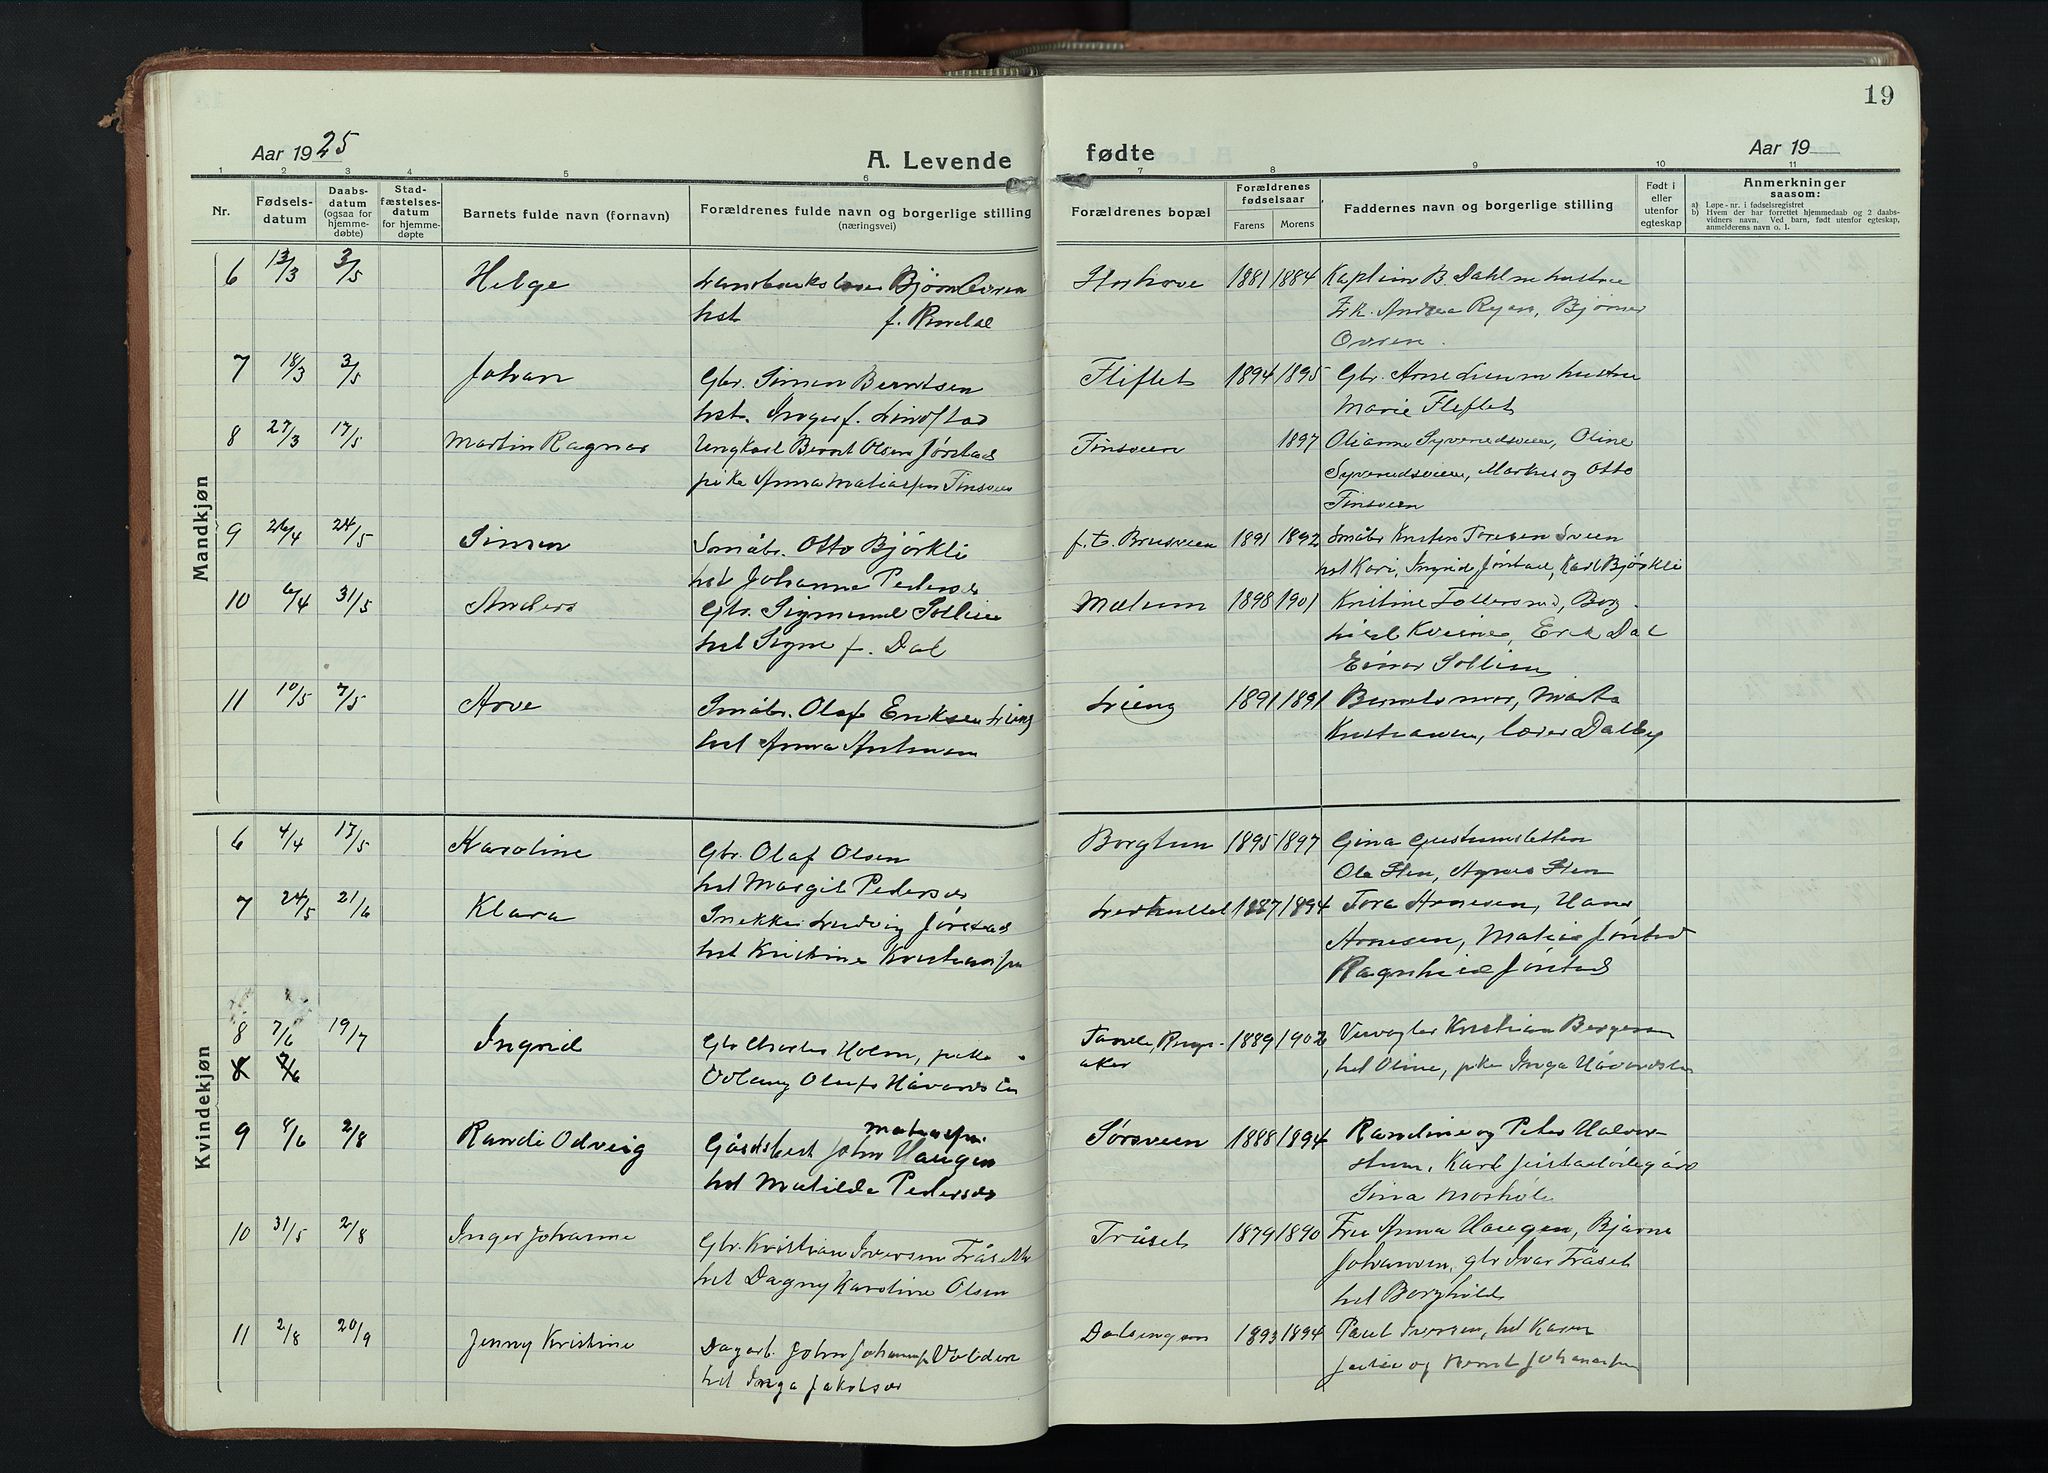 19
Aar 1925
A. Levende fødte
Aar 19
1 2 3 4 5 6 7 8 9 10 11
Nr. Fødselsdatum Daabsdatum (ogsaa for hjemmedøbte) Stadfæstelsesdatum for hjemmedøpte Barnets fulde navn (fornavn) Forældrenes fulde navn og borgerlige stilling (næringsvei) Forældrenes bopæl Forældrenes fødselsaar Farens Morens Faddernes navn og borgerlige stilling Født i eller utenfor egteskap Anmerkninger saasom:
a) Løpe-nr. i fødselsregistret
b) Hvem der har forrettet hjemmedaab og 2 daabsvidners navn. Ved barn, født utenfor egteskap, anmelderens navn o. l.
Mandkjøn
6 13/3 3/5 Helge Bjørn 1881 1884 Kaptein B. Dahl m hustru
hst f. Fr. Andrea Ryen, Bjørner
7 18/3 3/5 Johan Gbr. Simen Berntsen Fliflet 1894 1895 Gbr. Arne m hustru
hst. Inger f. Lindstad Marie Fliflet
8 27/3 17/5 Martin Ragnar Ungkarl Bernt Olsen Jørstad Finsveen 1897 Olianne Syverudsveen, Oline
pike Anna Matiassen Finsveen Syverudsveen, Markus og Otto
Finsveen
9 26/4 24/5 Simen Småbr. Otto Bjørkli f. t. Brusveen 1891 1892 Småbr Kristen Toresen Sveen
hst Johanne Pedersd hst Kari, Ingrid Jørstad, Karl Bjørkli
10 6/4 31/5 Anders Gbr. Sigmund Sollien Mælum 1898 1901 Kristine Follersrud, Borg-
hst Signe f. Dal hild Kverne, Erik Dal
Einar Sollien
11 10/5 7/5 Arve Småbr. Olaf Eriksen Lieng Lieng 1891 1891 Barnets mor, Marta
hst Anna Kristiansen, lærer Dalby
Kvindekjøn
6 4/4 17/5 Karoline Gbr. Olaf Olsen Borgtun 1895 1897 Gina
hst Margit Pedersd Ole Sten, Agnes Sten
7 24/5 21/6 Klara Snekker Ludvig Jørstad 1887 1894 Tora Arnesen, Hans
hst Kristine Kristiansen Arnesen, Jørstad
Ragnhild Jørstad
8 7/6 19/7 Ingrid Gbr Charles Holm, pike 1889 1902 Kristian Bergersen
8 7/6 Olufs aker hst Oline, pike Inga
9 8/6 2/8 Randi Odveig Gårdsbest John Matiassen Haugen Sørsveen 1888 1894 Randine og Peter Halvor-
hst Matilde Pedersd stuen, Karl
Sina
10 31/5 2/8 Inger Johanne Gbr. Kristian Iversen Tråset Tråset 1879 1890 Fru Anna Haugen, Bjarne
hst Dagny Karoline Olsen Johansen, gbr Ivar Tråset
hst Borghild
11 2/8 20/9 Jenny Kristine Dagarb. John Johansen Volden Dalsengen 1893 1894 Paul Iversen, hst Karen
hst Inga Jakobsd og Bernt Johansen